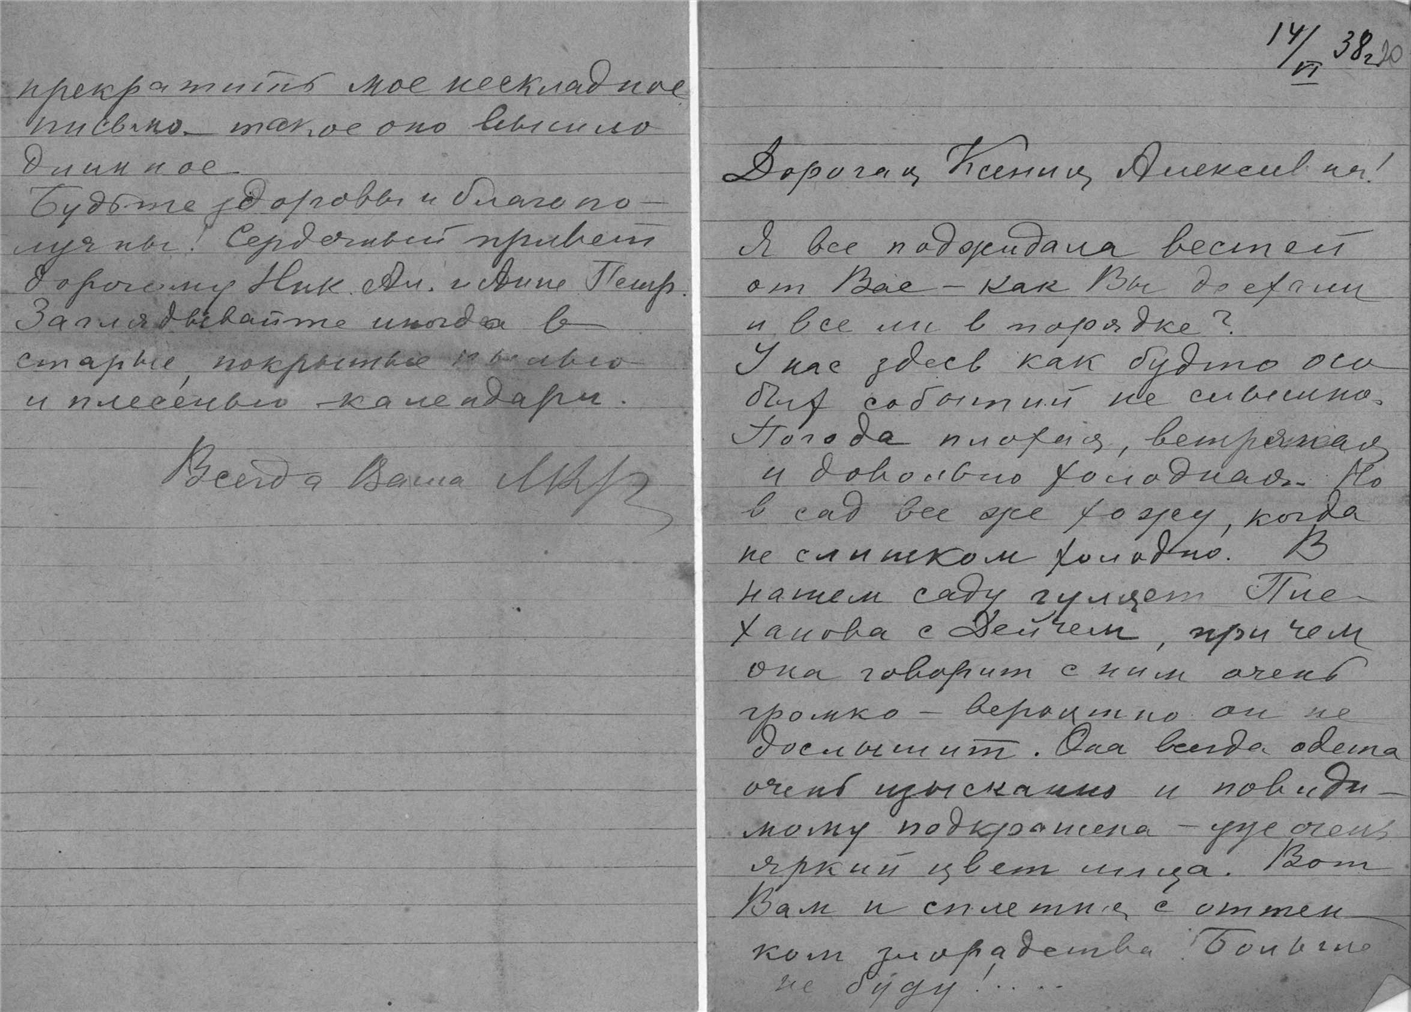 прекратить мое нескладное
письмо – такое оно вышло
длинное
Будьте здоровы и благопо–
лучны! Сердечный привет
дорогому Ник. Ал. и Анне Петр.
Заглядывайте иногда в
старые, покрытые пылью
и плесенью – календари.
Всегда Ваша
14/VI 38 г. 20
Дорогая Ксения Алексеевна!
Я все поджидала вестей
от Вас – как Вы доехали
и все ли в порядке?
У нас здесь как будто осо
бых событий не слышно.
Погода плохая, ветряная
и довольно холодная. Но
в сад все же хожу, когда
не слишком холодно. В
нашем саду гуляет Пле–
ханова с Дейчем, при чем
она говорит с ним очень
громко – вероятно он не
дослышит. Она всегда одета
очень изысканно и повиди–
мому подкрашена – уже очень
яркий цвет лица. Вот
Вам и сплетня с оттен–
ком злорадства! Больше
не буду!....